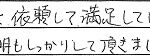 と依頼して満足してい
明もしっかりして頂きまし